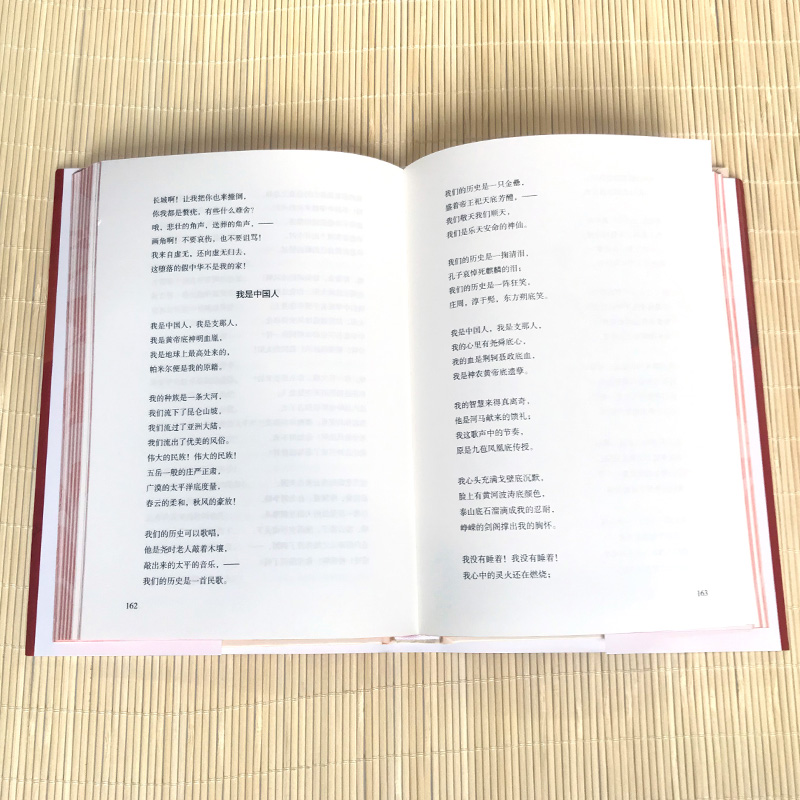 长城啊！让我把你也来撞倒，
你我都是赘疣，有些什么难舍？
哦，悲壮的角声，送葬的角声，——
画角啊！不要哀伤，也不要诅骂！
我来自虚无，还向虚无归去，
这堕落的假中华不是我的家！
我是中国人
我是中国人，我是支那人，
我是黄帝底神明血胤，
我是地球上最高处来的，
帕米尔便是我的原籍。
我的种族是一条大河，
我们流下了昆仑山坡，
我们流过了亚洲大陆，
我们流出了优美的风俗。
伟大的民族！伟大的民族！
五岳一般的庄严正肃，
广漠的太平洋底度量，
春云的柔和，秋风的豪放！
我们的历史可以歌唱，
他是尧时老人敲着木壤，
敲出来的太平的音乐，——
我们的历史是一首民歌。
162
我们的历史是一只金罍，
盛着帝王祀天底芳醴，——
我们敬天我们顺天，
我们是乐天安命的神仙。
我们的历史是一掬清泪，
孔子哀悼死麒麟的泪；
我们的历史是一阵狂笑，
庄周，淳于髡，东方朔底笑。
我是中国人，我是支那人，
我的心里有尧舜底心，
我的血是荆轲聂政底血，
我是神农黄帝底遗孽。
我的智慧来得真离奇，
他是河马献来的馈礼；
我这歌声中的节奏，
原是九苞凤凰底传授。
我心头充满戈壁底沉默，
脸上有黄河波涛底颜色，
泰山底石霤滴成我的忍耐，
峥嵘的剑阁撑出我的胸怀。
我没有睡着！我没有睡着！
我心中的灵火还在燃烧；
163